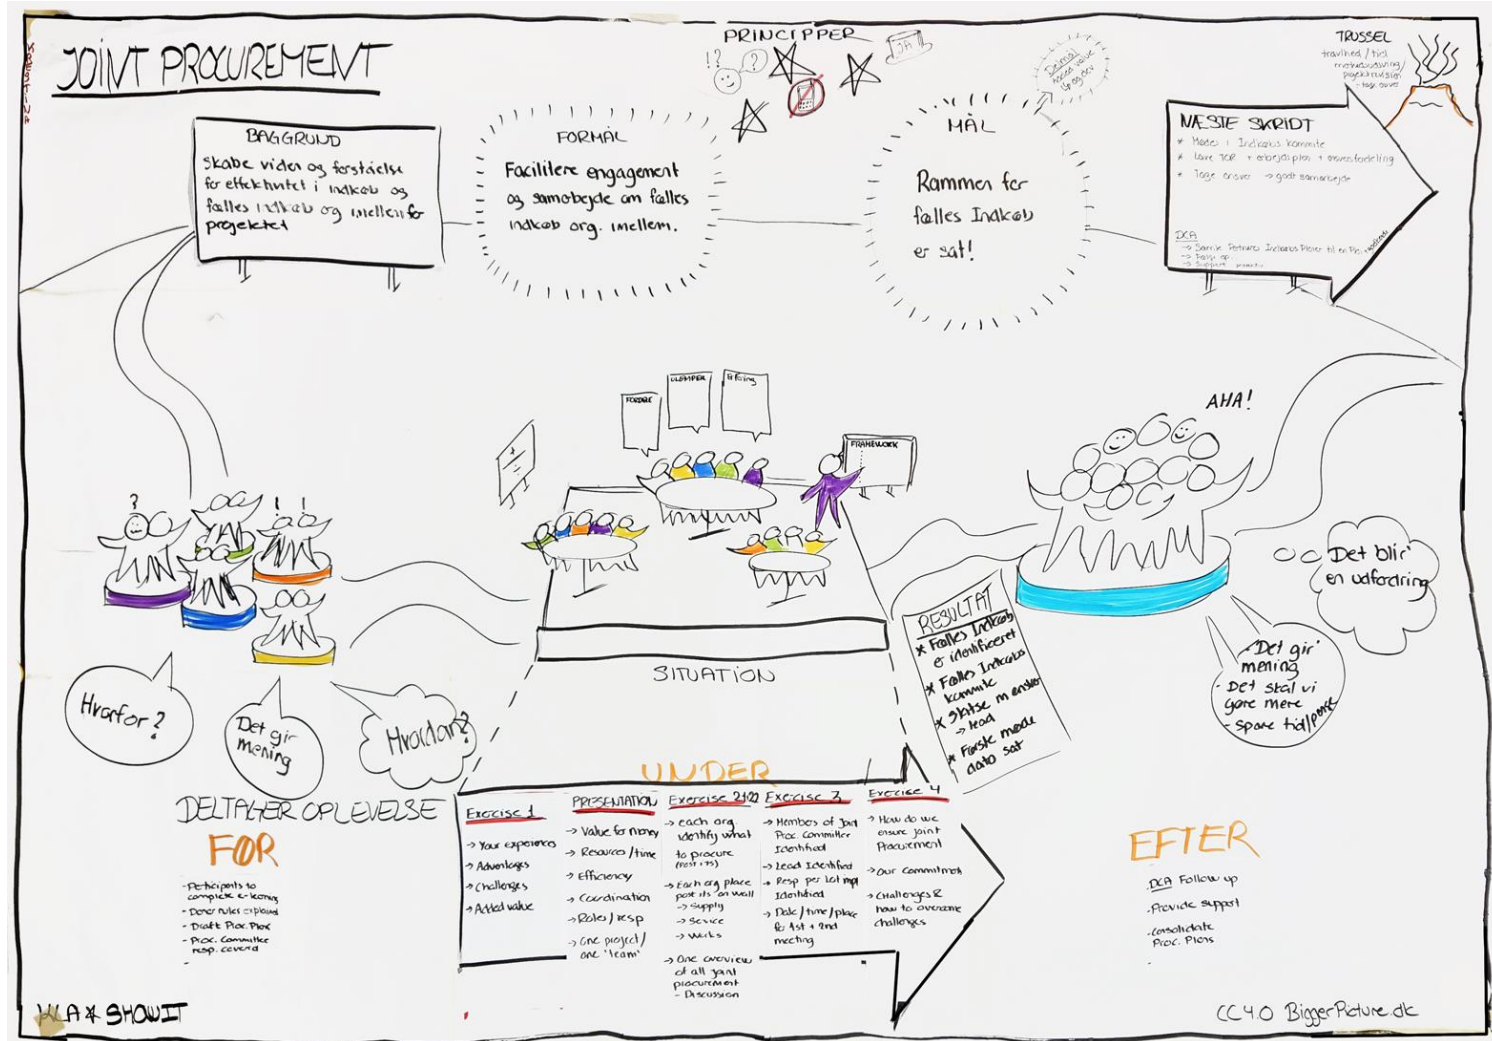 JOINT PROCUREMENT
PRINCIPPER
!?
?
JA
Delmål
TRUSSEL
travlhed / tid
BAGGRUND
Skabe viden og forståelse
for effektivitet i indkøb og
fælles indkøb og imellem for
projektet
FORMÅL
Facilitere engagement
og samarbejde om fælles
indkøb org. imellem.
MÅL
Rammen for
fælles Indkøb
er sat!
NÆSTE SKRIDT
* Mødes i Indkøbs kommite
* Lave TOR + arbejdsplan + ansvarsfordeling
* Tage ansvar → godt samarbejde
DCA
→ Samle Partneres Indkøbs Planer til en
→ Følge op
→ Support
FORDELE
ULEMPER
Erfaring
FRAMEWORK
AHA!
?
! !
Hvorfor?
Det gir
mening
Hvordan?
SITUATION
RESULTAT
* Fælles Indkøb
er identificeret
* Fælles Indkøbs
kommite
* Skitse m ansvar
→ lead
* Første møde
dato sat
Det blir'
en udfordring
- Det gir'
mening
- Det skal vi
gøre mere
- Spare tid/penge
DELTAGER OPLEVELSE
FØR
- Participants to
complete e-learning
- Donor rules explained
- Draft Proc. Plan
- Proc. Committee
resp. covered
-
UNDER
Exercise 1
→ Your experiences
→ Advantages
→ Challenges
→ Added value
PRESENTATION
→ Value for money
→ Resources / time
→ Efficiency
→ Coordination
→ Roles / resp
→ One project /
one 'team'
Exercise 2.1+2.2
→ each org.
identify what
to procure
(post its)
→ Each org place
post its on wall
→ Supply
→ Service
→ Works
→ One overview
of all joint
procurement
- Discussion
Exercise 3
→ Members of Joint
Proc. Committee
Identified
→ Lead Identified
→ Resp per Lot
Identified
→ Date / time / place
for 1st + 2nd
meeting
Exercise 4
→ How do we
ensure joint
Procurement
→ Our commitment
→ Challenges &
how to overcome
challenges
EFTER
- DCA Follow up
- Provide support
- Consolidate
Proc. Plans
SHOWIT
CC 4.0 BiggerPicture.dk